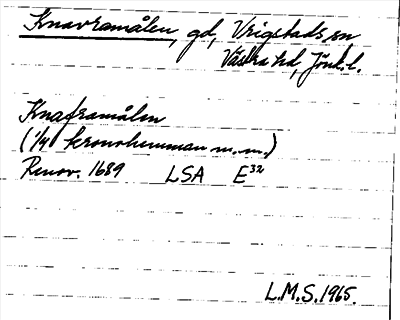 Knavramålen, gd, Vrigstads sn
Västra hd, Jönk. l.
Knaframålen
(1/4 kronohemman m. m.)
Renov. 1689 LSA E³²
L.M.S. 1965.